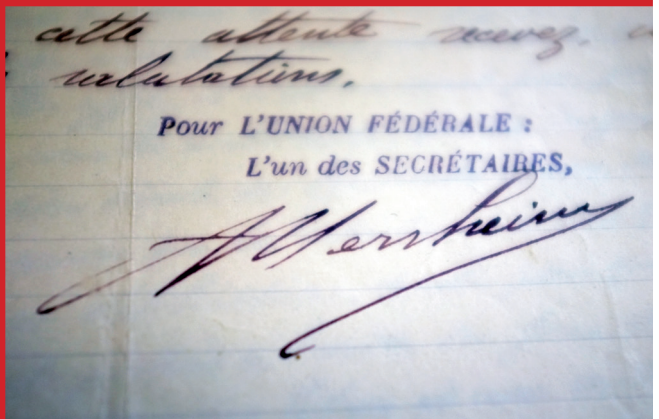 cette attente recevez,
salutations.
Pour L'UNION FÉDÉRALE :
L'un des SECRÉTAIRES,
A Merrheim